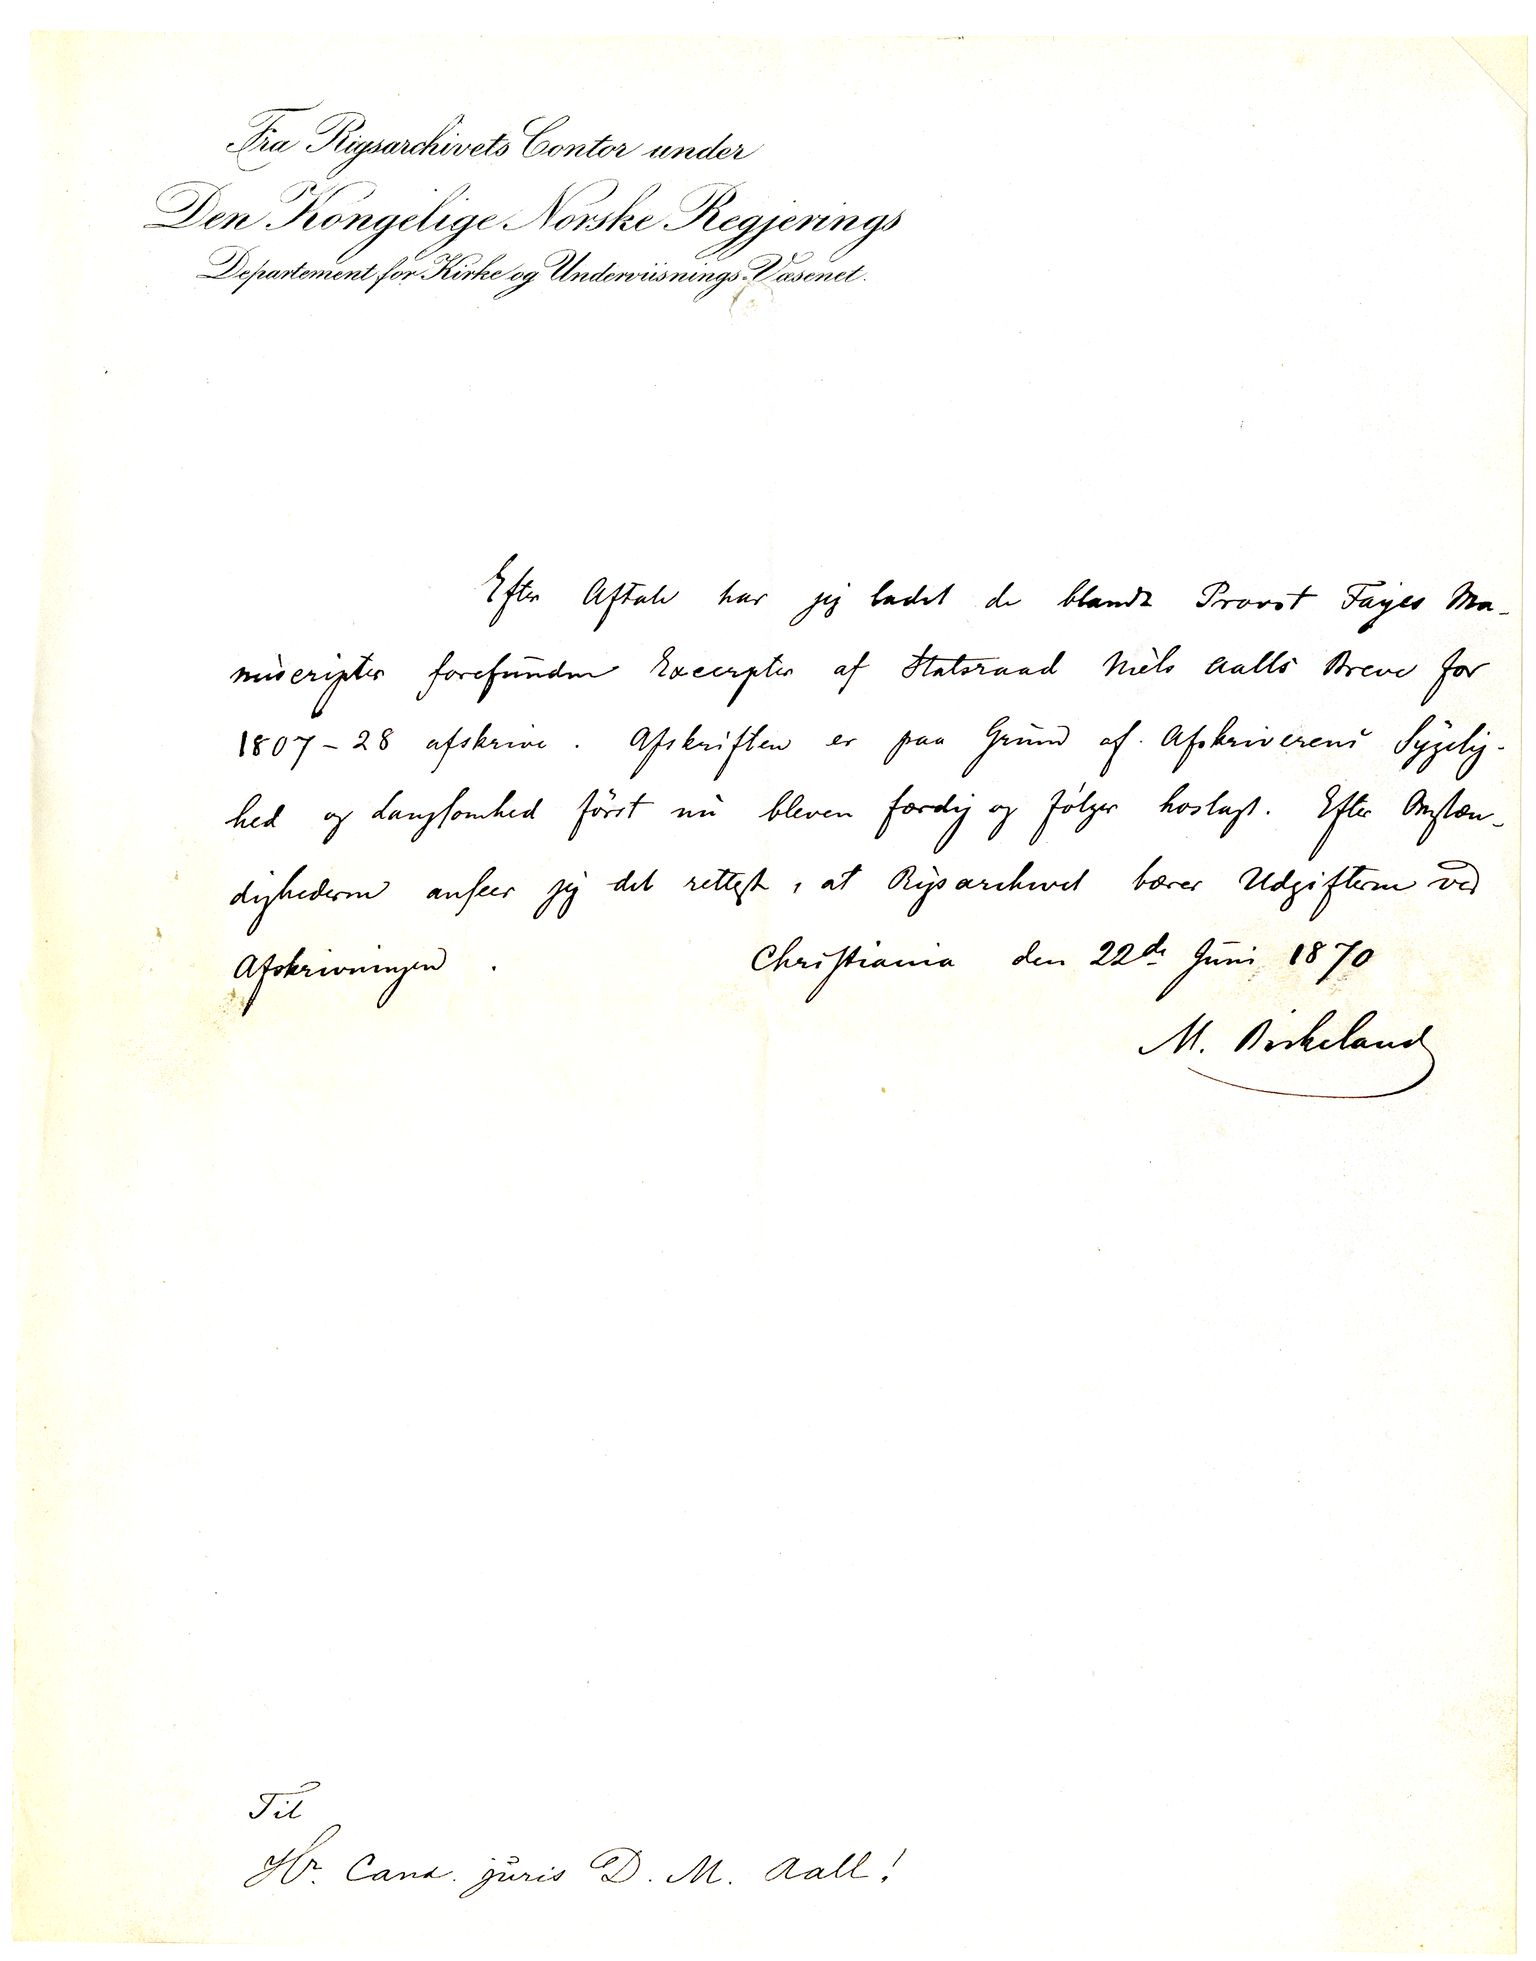 Fra Rigsarchivets Contor under
Den Kongelige Norske Regjerings
Departement for Kirke og Underviisnings-Væsenet.
Efter Aftale har jeg ladet de blandt Provst Fayes Ma-
nuscripter forefundne Excerpter af Statsraad Niels Aalls Breve for
1807-28 afskrive. Afskriften er paa Grund af Afskriverens Sygelig-
hed og Langsomhed først nu bleven færdig og følger hoslagt. Efter Omstæn-
dighederne anseer jeg det rettest, at Rigsarchivet bærer Udgifterne ved
Afskrivningen.
Christiania den 22de Juni 1870
M. Birkeland
Til
Hr. Cand. juris D. M. Aall!